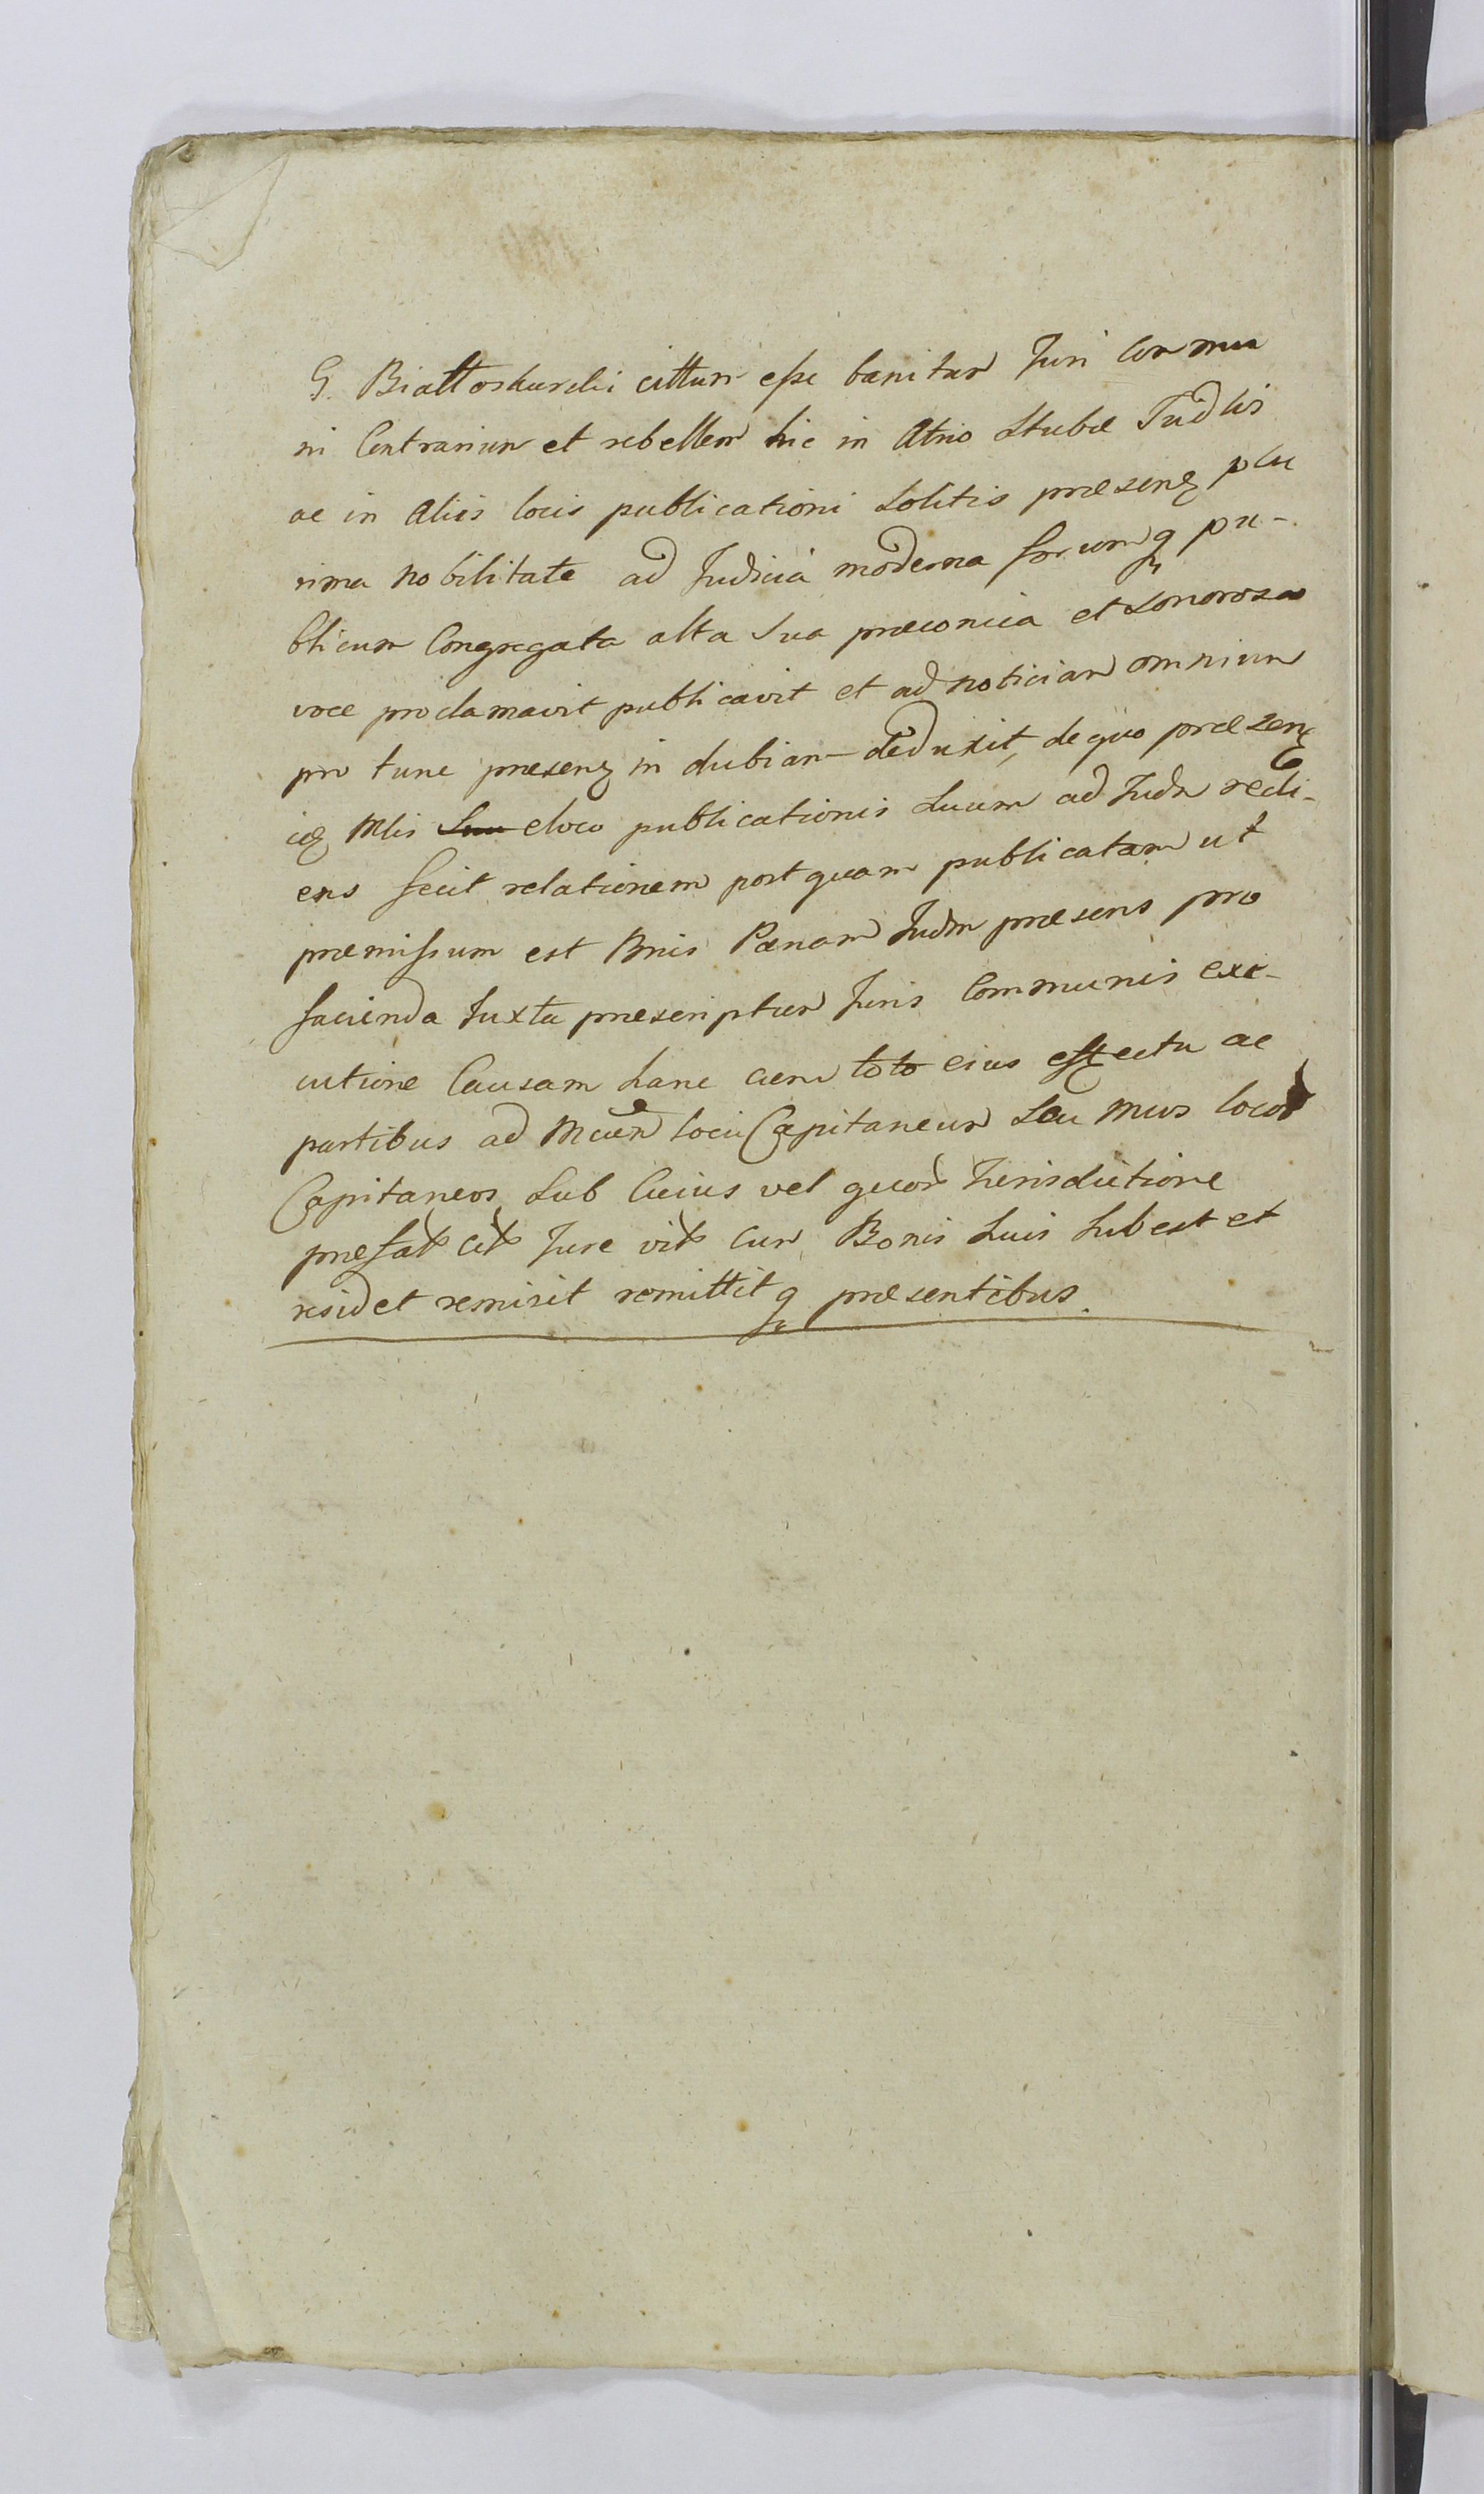 G. Białłoskurski cittum esse banitum Juri Commu
ni Contrarium et rebellem hic in Atrio Stubæ Judlis
ac in Aliis locis publicationi Solitis præsenʒ plu
rima nobilitate ad Judicia moderna forumqʒ pu-
blicum Congregata alta Sua præconica et Sonorosa
voce proclamavit publicavit et ad noticiam omnium
pro tunc præsenʒ in dubiam deduxit, de quo præsenʒ
idʒ Mlis eloco publicationis Suum ad Judm redi-
ens fecit relationem post quam publicatam ut
præmissum est Bnis Pænam Judm præsens pro
facienda Juxta præscriptum Juris Communis exe-
cutione Causam hanc cum toto eius effectu ac
partibus ad Mcum loci Capitaneum Seu Mcos locor
Capitaneos Sub Cuius vel quor Jurisdictione
præfat cit Jure vit cum Bonis Suis Subest et
residet remisit remittitqʒ præsentibus.